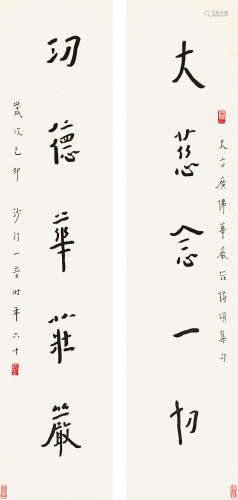 大方廣佛華嚴經偈頌集句
大慈念一切
功德華莊嚴
歲次己卯 沙門一音時年六十